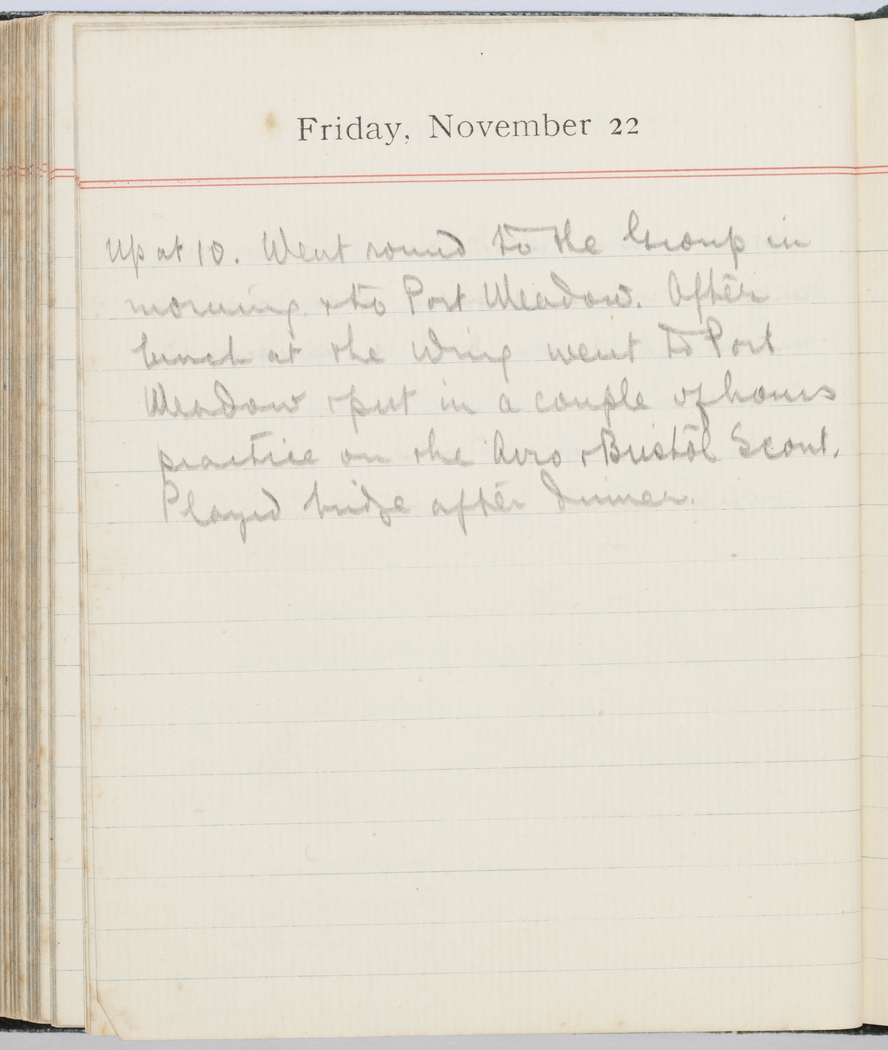 Friday, November 22
Up at 10. Went round to the Group in
morning & to Port Meadow. After
lunch at the Wing went to Port
Meadow & put in a couple of hours
practice on the Avro & Bristol Scout.
Played bridge after dinner.